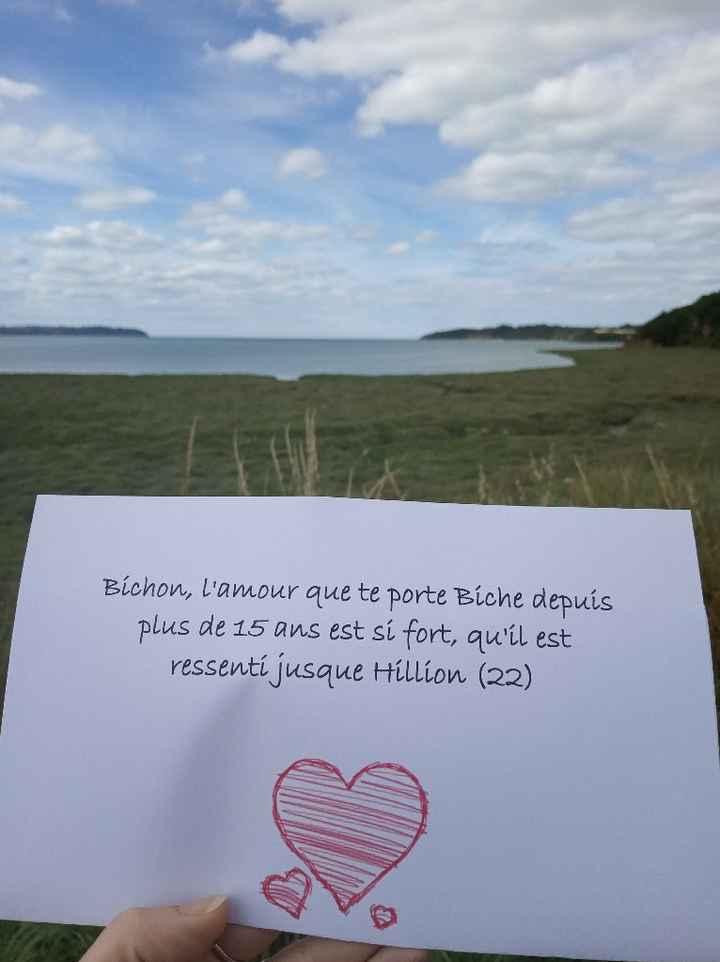 Bichon, l'amour que te porte Biche depuis
plus de 15 ans est si fort, qu'il est
ressenti jusque Hillion (22)